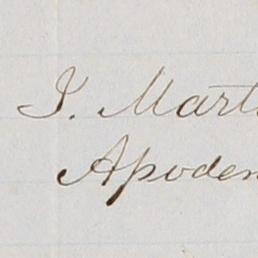 J. Mart
Apoden